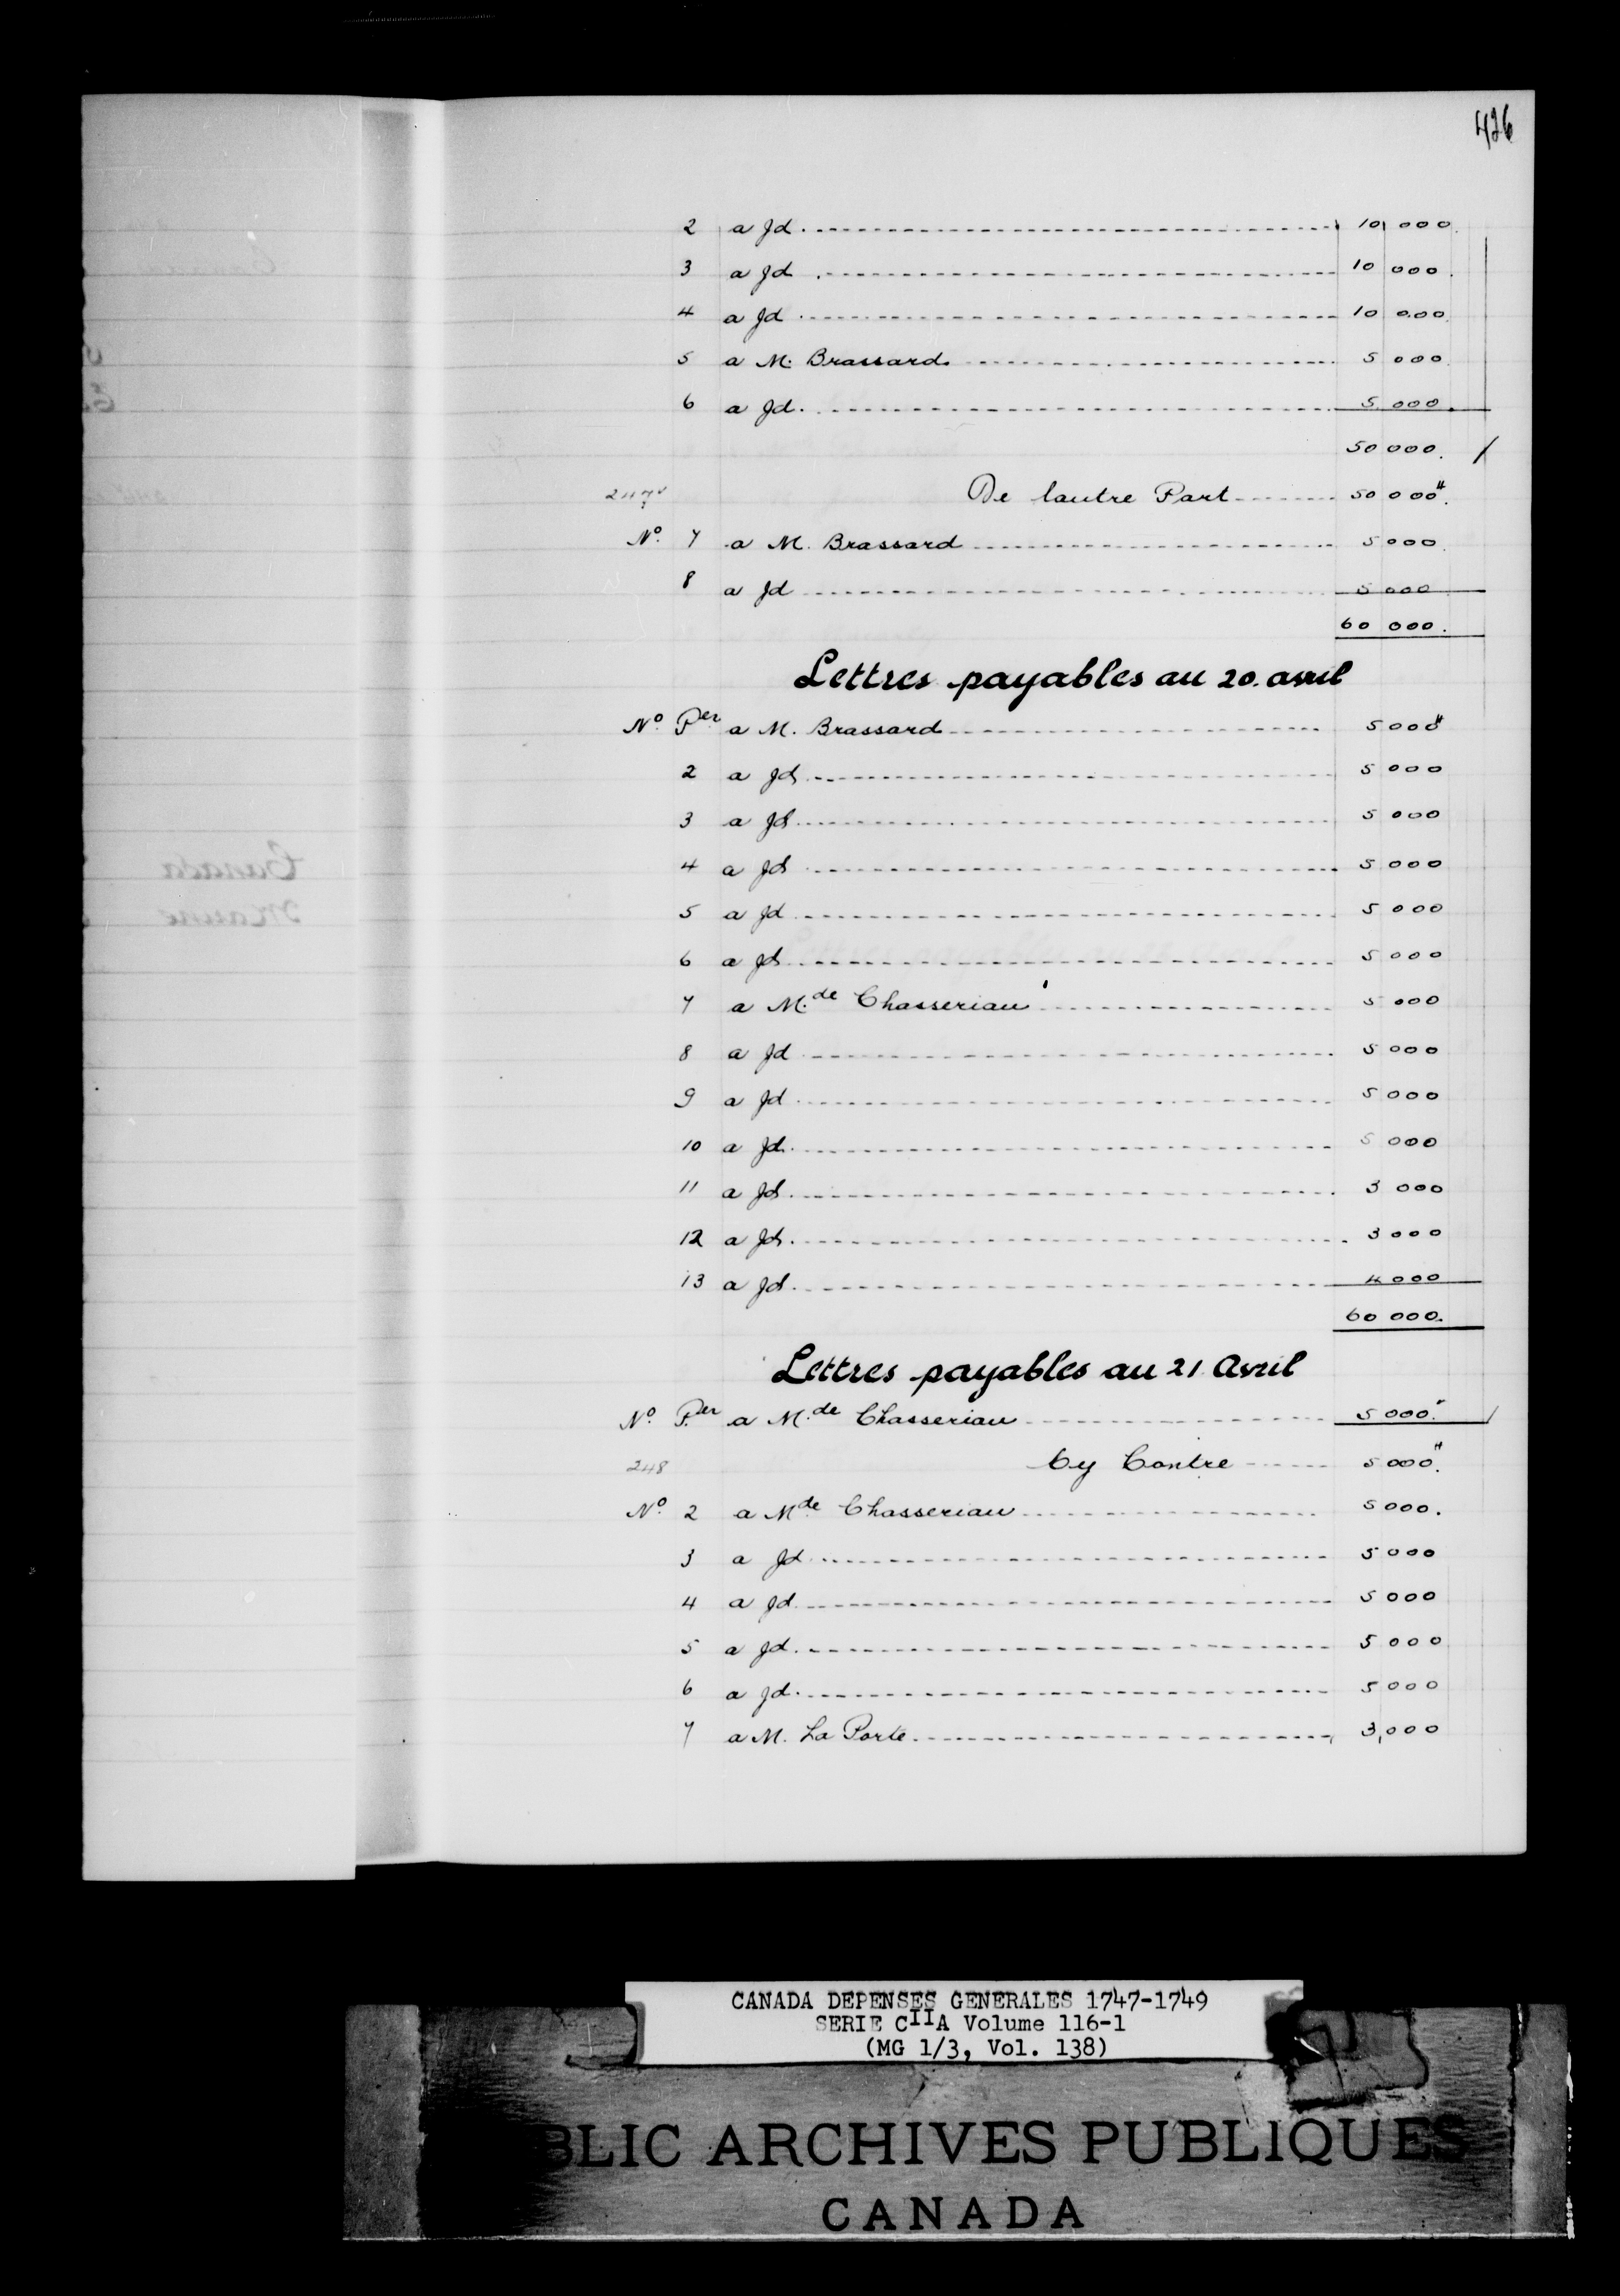 426
2 a Jd. 10 000.
3 a Jd. 10 000.
4 a Jd. 10 000.
5 a M. Brassard 5 000.
6 a Jd. 5 000.
50 000. /
De lautre Part 50 000#.
No. 7 a M. Brassard 5 000.
8 a Jd 5 000
60 000.
Lettres payables au 20. avril
No. Per a M. Brassard 5 000#
2 a Jd 5 000
3 a Jd 5 000
4 a Jd 5 000
5 a Jd 5 000
6 a Jd 5 000
7 a M.de Chasseriau 5 000
8 a Jd 5 000
9 a Jd 5 000
10 a Jd. 5 000
11 a Jd. 3 000
12 a Jd. 3 000
13 a Jd. 4 000
60 000.
Lettres payables au 21 Avril
No. Per a M.de Chasseriau 5 000.
248 Cy Contre 5 000#.
No. 2 a Mde Chasseriau 5 000.
3 a Jd 5 000
4 a Jd 5 000
5 a Jd. 5 000
6 a Jd. 5 000
7 a M. La Porte. 3,000
Canada
Marine
CANADA DEPENSES GENERALES 1747-1749
SERIE CIIA Volume 116-1
(MG 1/3, Vol. 138)
BLIC ARCHIVES PUBLIQUES
CANADA